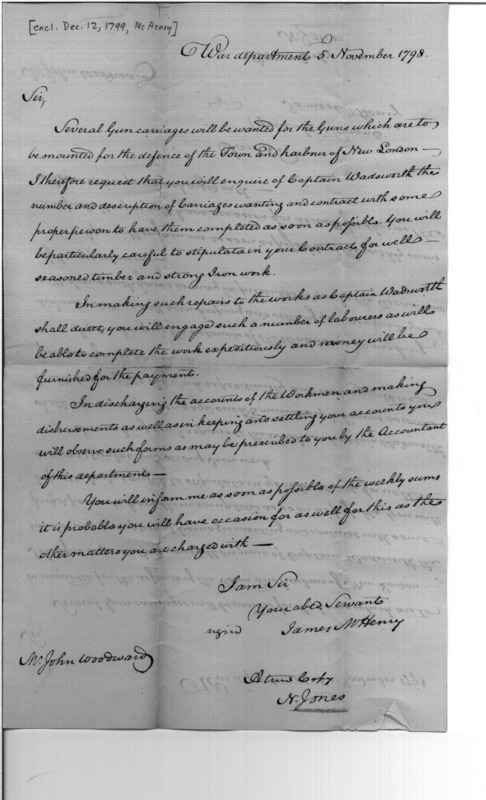 [encl. Dec. 12, 1799, McHenry]
War department 5 November 1798.
Sir,
Several Gun carriages will be wanted for the Guns which are to
be mounted for the defence of the Town and harbour of New London —
I therefore request that you will enquire of Captain Wadsworth the
number and description of Carriages wanting and contract with some
proper person to have them completed as soon as possible. You will
be particularly careful to stipulate in your Contracts for well
seasoned timber and strong Iron work.
In making such repairs to the works as Captain Wadsworth
shall direct, you will engage such a number of labourers as will
be able to complete the work expeditiously and money will be
furnished for the payment.
In discharging the accounts of the Workmen and making
disbursements as well as in keeping and settling your accounts you
will observe such forms as may be prescribed to you by the Accountant
of this department —
You will inform me as soon as possible of the weekly sums
it is probable you will have occasion for as well for this as the
other matters you are charged with —
I am Sir
Your obed Servant
signd James McHenry
Mr. John Woodward
A true Copy
N. Jones